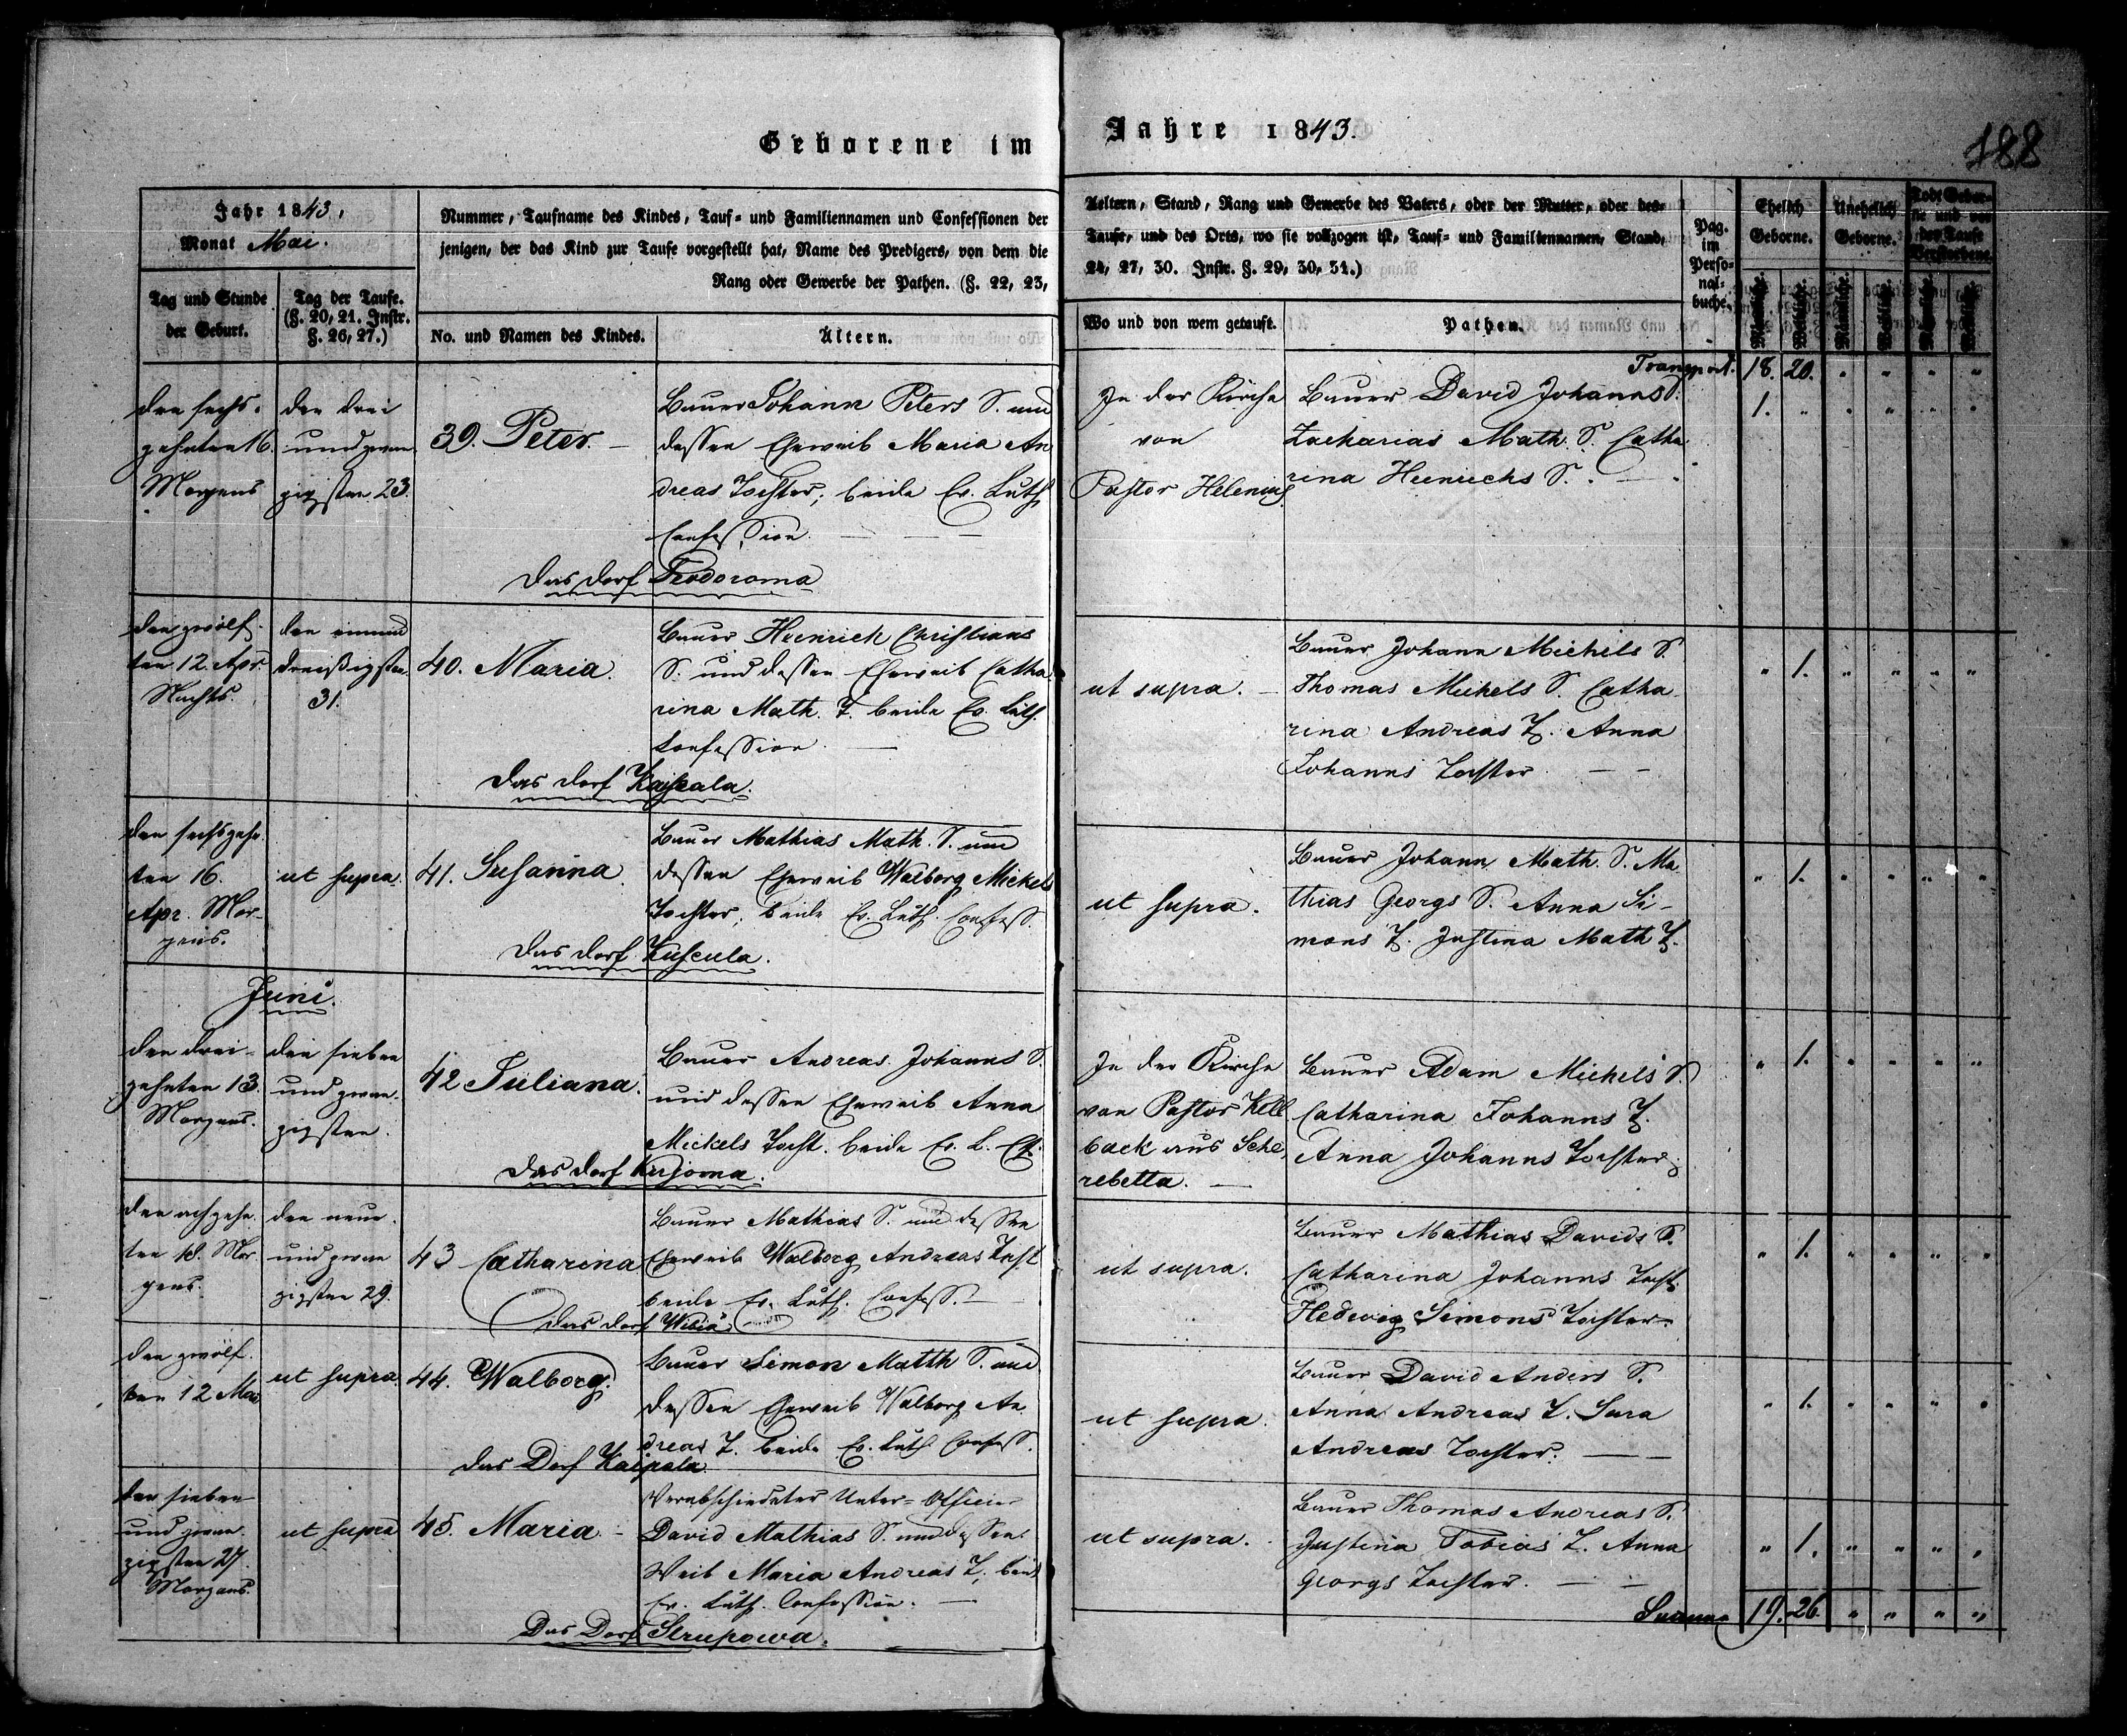 Geborene im Jahre 1843.
188
Jahr 1843,
Monat Mai.
Tag und Stunde
der Geburt.
Tag der Taufe.
(§. 20, 21. Instr.
§. 26, 27.)
Nummer, Taufname des Kindes, Tauf- und Familiennamen und Confessionen der
jenigen, der das Kind zur Taufe vorgestellt hat, Name des Predigers, von dem die
Rang oder Gewerbe der Pathen. (§. 22, 23,
No. und Namen des Kindes.
Ältern.
Aeltern, Stand, Rang und Gewerbe des Vaters, oder der Mutter, oder des-
Taufe, und des Orts, wo sie vollzogen ist, Tauf- und Familiennamen, Stand,
24, 27, 30. Instr. §. 29, 30, 31.)
Wo und von wem getauft.
Pathen.
Pag.
im
Perso-
nal-
buche.
Ehelich
Geborne.
Unehelich
Geborne.
Todt Gebor-
ne und vor
der Taufe
Verstorbene.
Männliche.
Weibliche.
Männliche.
Weibliche.
Männliche.
Weibliche.
Transport. 18. 20. " " " "
den sechs-
zehnten 16.
Morgens
den drei
und zwan
zigsten 23.
39. Peter —
Bauer Johann Peters S. und
dessen Eheweib Maria An
dreas Tochter, beide Ev. Luth.
Confession.
Das Dorf Feodoroma
In der Kirche
von
Pastor Helenius
Bauer David Johanns S.
Zacharias Math. S. Catha
rina Heinrichs S.
1. " " " " "
den zwölf-
ten 12. Apr.
Nachts.
den einund
dreißigsten
31.
40. Maria.
Bauer Heinrich Christians
S. und dessen Eheweib Catha
rina Math. T. beide Ev. Luth.
Confession
Das Dorf Kaipala.
ut supra. —
Bauer Johann Michels S.
Thomas Michels S. Catha
rina Andreas T. Anna
Johanns Tochter
" 1. " " " "
den sechszehn
ten 16.
Apr. Mor-
gens.
ut supra.
41. Susanna.
Bauer Mathias Math. S. und
dessen Eheweib Walborg Michels
Tochter, beide Ev. Luth. Confess.
Das Dorf Kuscula.
ut supra.
Bauer Johann Math. S. Ma
thias Georgs S. Anna Si-
mons T. Justina Math T.
" 1. " " " "
Juni.
den drei-
zehnten 13.
Morgens.
den sieben
und zwan-
zigsten.
42 Juliana.
Bauer Andreas Johanns S.
und dessen Eheweib Anna
Michels Tocht. beide Ev. L. Cf.
Das Dorf Kujoma.
In der Kirche
von Pastor Kell
back aus Sche
rebetta. —
Bauer Adam Michels S.
Catharina Johanns T.
Anna Johanns Tochter.
" 1. " " " "
den achzehn
ten 18. Mor
gens.
den neun
und zwan
zigsten 29.
43 Catharina
Bauer Mathias S. und dessen
Eheweib Walborg Andreas Tocht
beide Ev. Luth. Confess. —
Das Dorf Wibia
ut supra.
Bauer Mathias Davids S.
Catharina Johanns Tocht.
Hedewig Simons Tochter.
" 1. " " " "
den zwölf-
ten 12 Mai
ut supra.
44. Walborg.
Bauer Simon Matth S. und
dessen Eheweib Walborg An
dreas T. beide Ev. Luth Confess.
Das Dorf Kaipala
ut supra.
Bauer David Anders S.
Anna Andreas T. Sara
Andreas Tochter.
" 1. " " " "
den sieben
und zwan-
zigsten 27
Morgens.
ut supra
45. Maria. —
Verabschiedeter Unter-Officier
David Mathias S. und dessen
Weib Maria Andreas T, beid
Ev. Luth. Confession. —
Das Dorf Strupowa.
ut supra.
Bauer Thomas Andreas S.
Justina Tobias T. Anna
Georgs Tochter.
" 1. " " " "
Summa 19. 26. " " " "